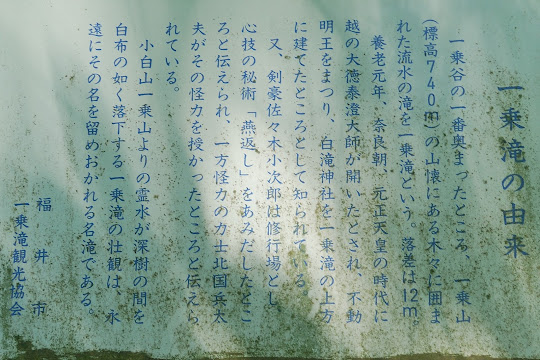 一乗滝の由来
一乗谷の一番奥まったところ、一乗山
(標高740m)の山懐にある木々に囲ま
れた流水の滝を一乗滝という。落差は12m
養老元年、奈良朝、元正天皇の時代に
越の大徳泰澄大師が開いたとされ、不動
明王をまつり、白滝神社を一乗滝の上方
に建てたところとして知られている
又、剣豪佐々木小次郎は修行場とし
心技の秘術「燕返し」をあみだしたとこ
ろと伝えられ、一方怪力の力士北国兵太
夫がその怪力を授かったところと伝えら
れている。
小白山一乗山よりの霊水が深樹の間を
白布の如く落下する一乗滝の壮観は、永
遠にその名を留めおかれる名滝である。
福井市
一乗滝観光協会